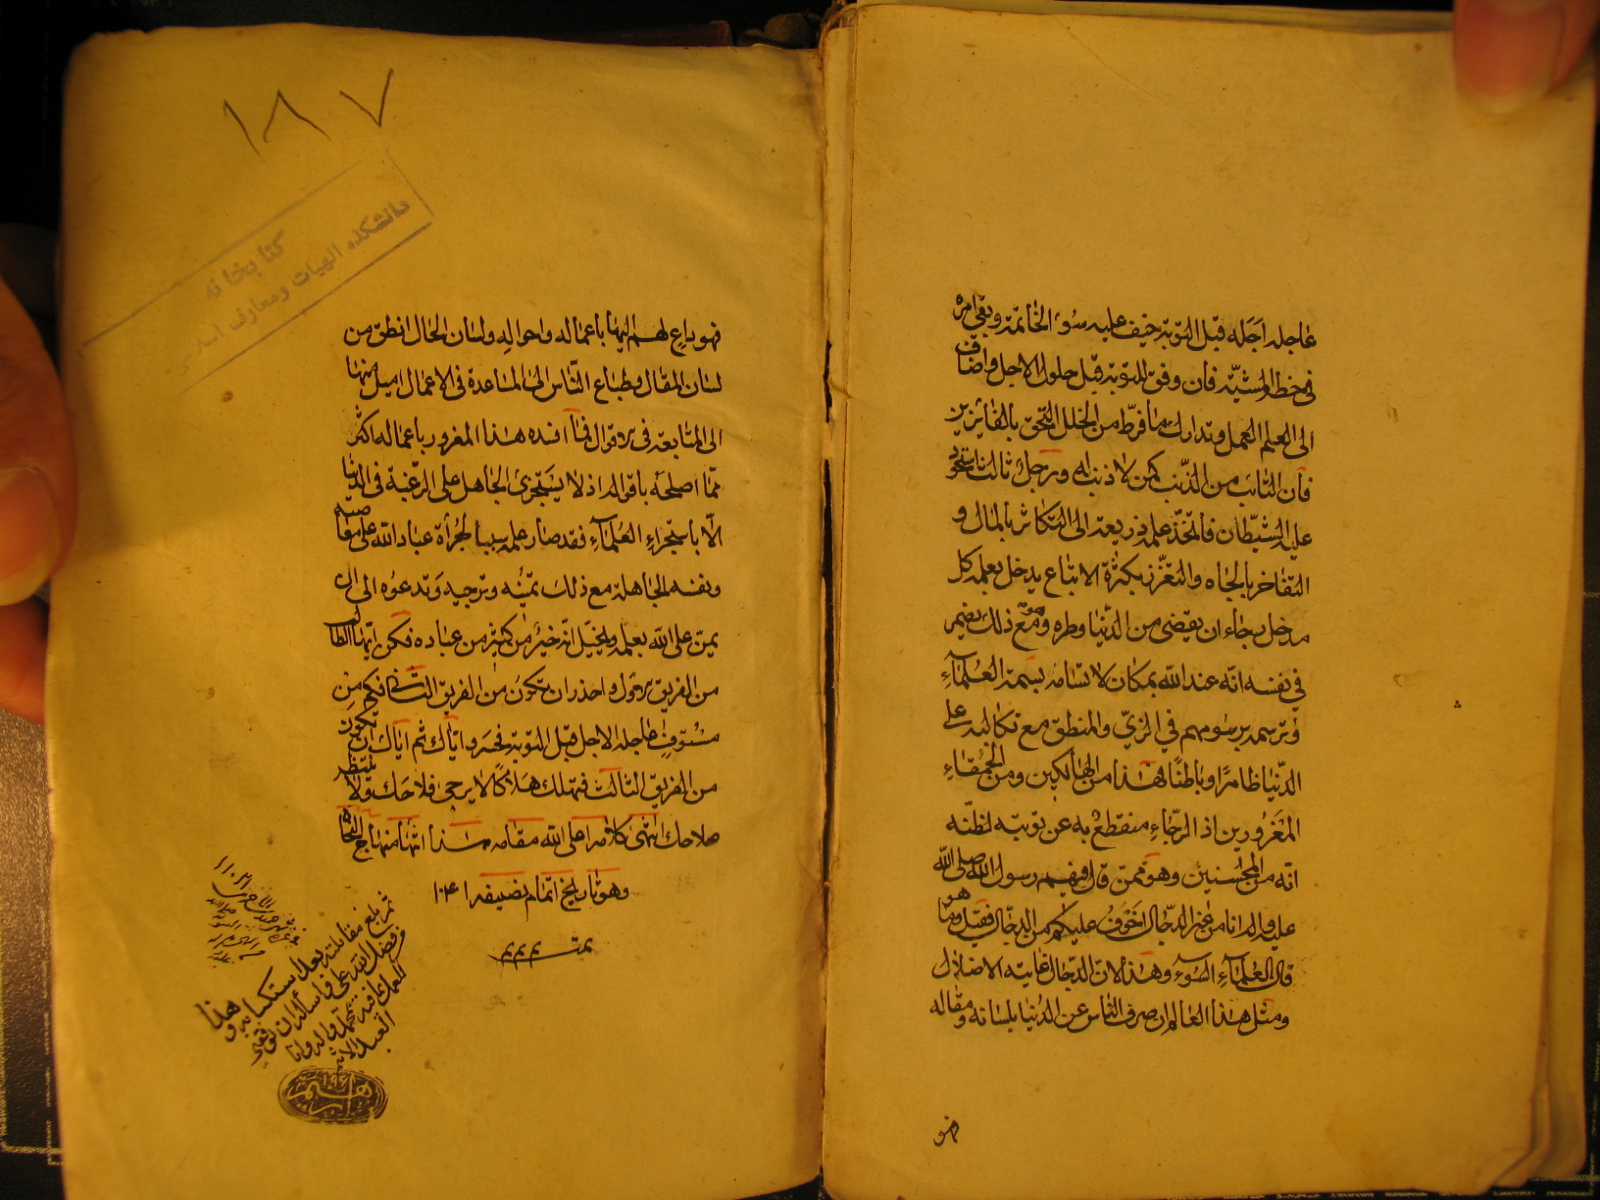 عاجله اجله قبل التوبة خيف عليه سوء الخاتمة وبقي امره
في خطر المشيّة فان وفق للتوبة قبل حلول الاجل واضاف
الى العلم العمل وتدارك ما فرّط من الخلل التحق بالفائزين
فان التائب من الذّنب كمن لا ذنب له ورجل ثالث استحوذ
عليه الشيطان فاتخذ علمه ذريعة الى التكاثر بالمال و
التفاخر بالجاه والتعزّز بكثرة الاتباع يدخل بعلمه كل
مدخل رجاء ان يقضى من الدّنيا وطره وهو مع ذلك يضمر
في نفسه انه عند الله بمكان لاتسامه بسمة العلماء
وترسمه برسومهم في الزيّ والمنطق مع تكالبه على
الدّنيا ظاهرًا وباطنًا فهذا من الهالكين ومن الحمقاء
المغرورين اذ الرجاء منقطع به عن توبته لظنّه
انه من المحسنين وهو ممن قال فيهم رسول الله صلى الله
عليه واله انا من غير الدجّال اخوف عليكم من الدجال فقيل وما هو
قال العلماء السوء وهذا لان الدجّال غايته الاضلال
ومثل هذا العالم ان صرف الناس عن الدنيا بلسانه ومقاله
فهو
١٨٧
كتابخانه
دانشكده الهيات ومعارف اسلامى
فهو داع لهم اليها باعماله واحواله ولسان الحال انطق من
لسان المقال وطباع النّاس الى المساعدة في الاعمال اميل منها
الى المتابعة في الاقوال فما افسده هذا المغرور باعماله اكثر
ممّا اصلحه باقواله اذ لا يستجرئ الجاهل على الرّغبة في الدنيا
الّا باستجراء العلماء فقد صار علمه سببا لجرأة عباد الله على معاصيه
ونفسه الجاهلة مع ذلك تمنّيه وترجيه وتدعوه الى ان
يمنّ على الله بعلمه ويخيّل انه خير من كثير من عباده فكن ايّها الطالب
من الفريق الاول واحذر ان تكون من الفريق الثاني فكم من
مسوّف عاجله الاجل قبل التوبة فخسر واياك ثم اياك ان تكون
من الفريق الثالث فتهلك هلاكا لا يرجى فلاحك ولا ينتظر
صلاحك انتهى كلامه اعلى الله مقامه هذا انتهاء منهاج النجاة
وهو تاريخ اتمام تصنيفه ١٠٤٢
تمت
ثم بلغ مقابلته بعد استكتابه وهذا
من فضل الله علي فاسأله ان يوفقني
للعمل بما فيه بمحمد واله وانا
العبد الاثم